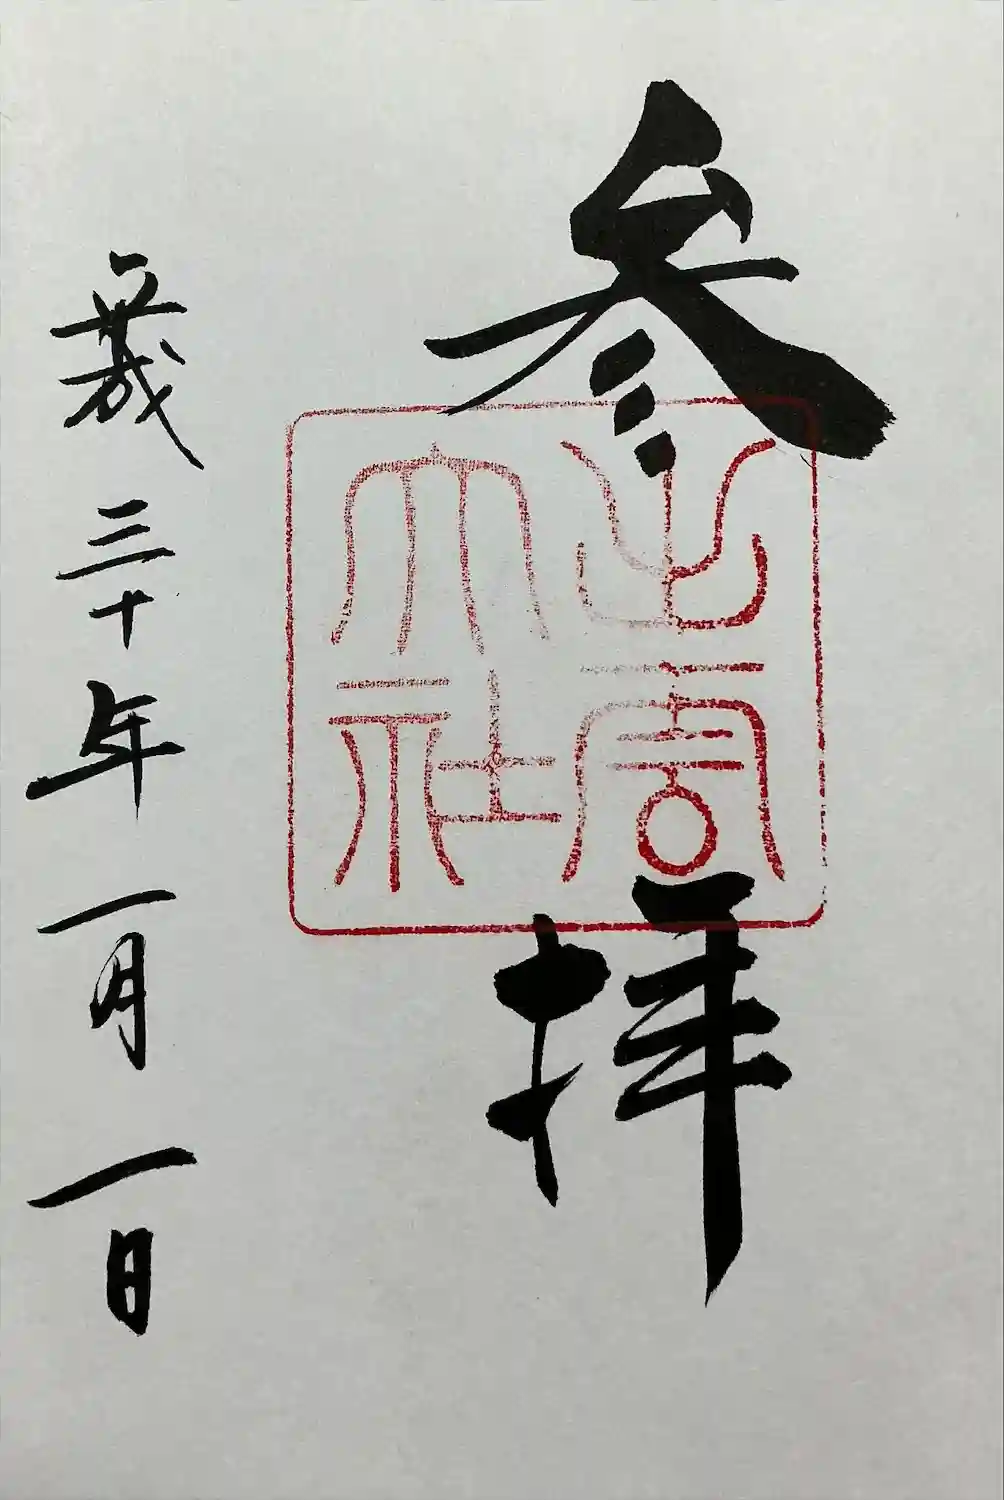 参拝
出雲
大社
平成三十年一月一日